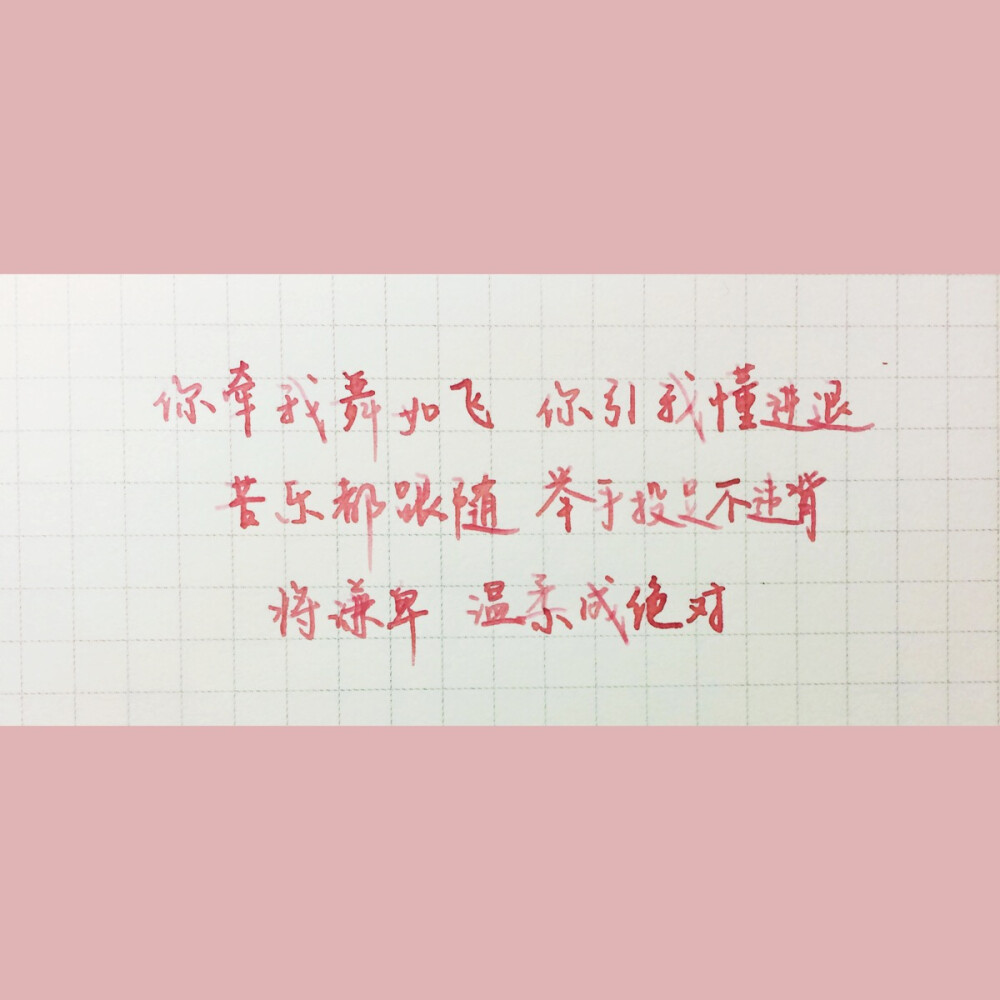 你牵我舞如飞 你引我懂进退
苦乐都跟随 举手投足不违背
将谦卑 温柔成绝对